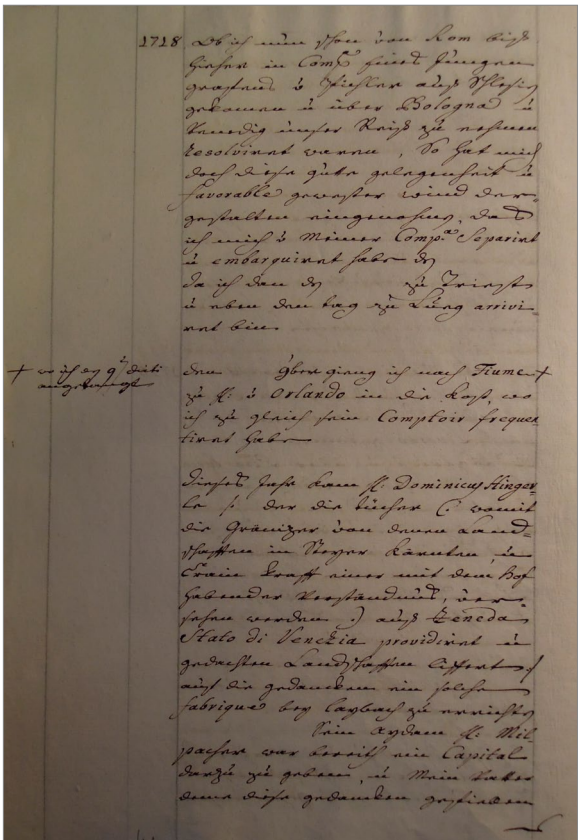 1718 Ob ich nun schon von Rom biß
hieher in Comp: eines Jungen
grafens v aus Schlesien
gekomen ü über Bologna ü
Venedig unser Reiß zu nehmen
resolviret waren, So hat mich
doch diese gute gelegenheit ü
favorable gewester wind der-
gestalten eingenohmen, daß
ich mich v Meiner Comp:a Separirt
ü embarquiret habe d
da ich dan d zu Triest
ü eben den tag zu Lueg arrivi-
ret bin.
+ wo ich d 9 ditto
angelangt
den 9ber gieng ich nach Fiume +
zu H: v Orlando in die Kost, wo
ich zu gleich sein Comptoir frequen
tiret habe
dieses Jahr kam H: Dominicus Hinger
le /: der die tücher (: womit
die Gränizer von denen Land-
schafften in Steyer Kärnten, ü
Crain krafft einer mit dem Hof
habender Verständnus, ver-
sehen werden :) auß Zeneda
Stato di Venezia providiret ü
gedachten Landschafften liffert :/
auf die gedancken ein solche
fabrique bey Laybach zu errichten
Sein Aydam H: Mil
pacher war bereith ein Capital
darzu zu geben, ü Mein Vatter
deme diese gedancken gefiellen